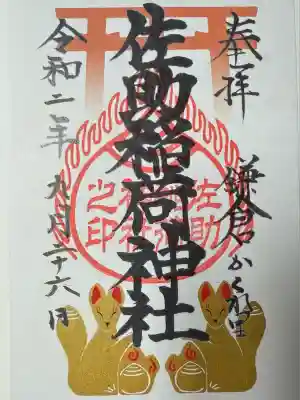 奉拝
鎌倉かくれ里
佐助稲荷神社
令和二年
九月二十六日
佐助
稲荷
神社
之印